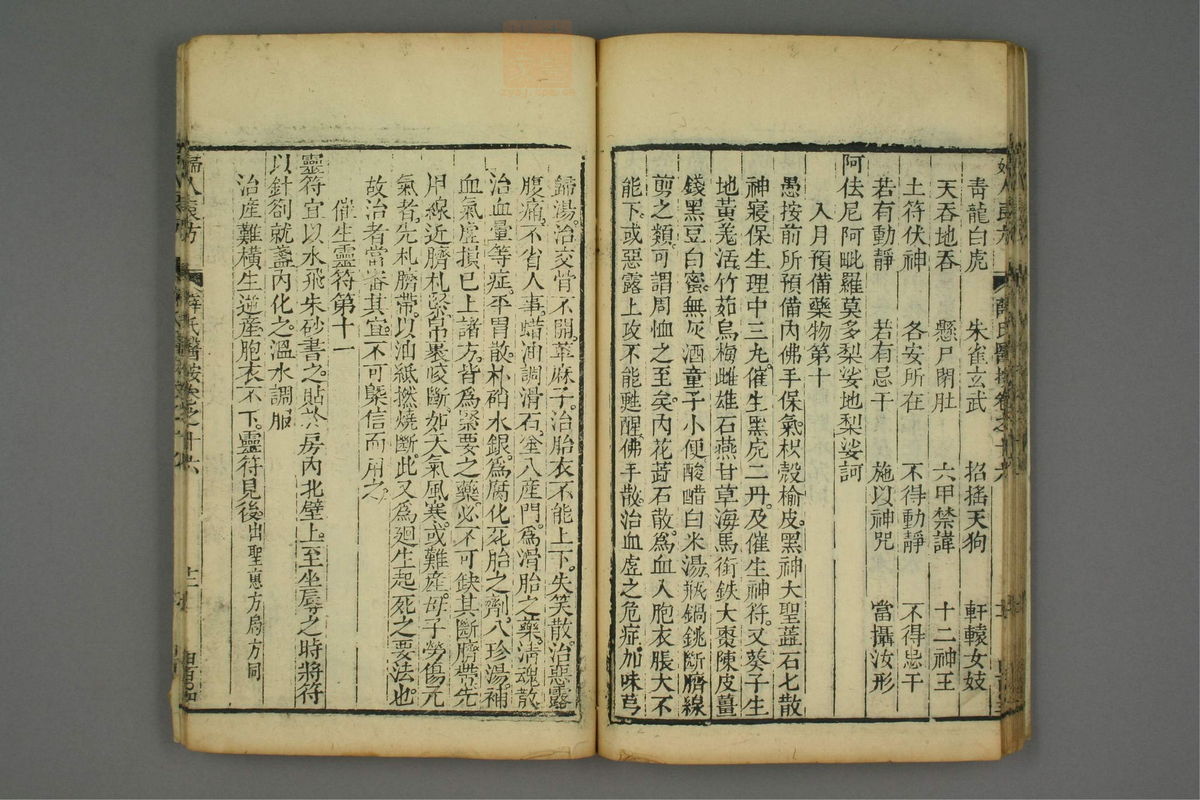 青龍白虎 朱雀玄武 招搖天狗 軒轅女妓
天吞地吞 懸尸閉肚 六甲禁諱 十二神王
土符伏神 各安所在 不得動靜 不得忌干
若有動靜 若有忌干 施以神咒 當攝汝形
阿佉尼阿毗羅莫多梨娑地梨娑訶
入月預備藥物第十
愚按前所預備內佛手保氣枳殼榆皮黑神大聖藎石七散
神寢保生理中三丸催生黑虎二丹及催生神符又葵子生
地黃羌活竹茹烏梅雌雄石燕甘草海馬銜鉄大棗陳皮薑
錢黑豆白蜜無灰酒童子小便酸醋白米湯瓶鍋銚斷臍線
剪之類可謂周恤之至矣內花蕋石散為血入胞衣脹大不
能下或惡露上攻不能甦醒佛手散治血虛之危症加味芎
歸湯治交骨不開萆麻子治胎衣不能上下失笑散治惡露
腹痛不省人事蜡油調滑石塗入產門為滑胎之藥清魂散
治血暈等症平胃散朴硝水銀為腐化死胎之劑八珍湯補
血氣虛損已上諸方皆為緊要之藥必不可缺其斷臍帶先
用線近臍札緊帛裹咬斷如天氣風寒或難產母子勞傷元
氣者先札臍帶以油紙撚燒斷此又為迴生起死之要法也
故治者當審其宜不可槩信而用之
催生靈符第十一
靈符宜以水飛朱砂書之貼於房內北壁上至坐辱之時將符
以針劄就盞內化之溫水調服
治產難橫生逆產胞衣不下靈符見後出聖惠方扇方同
婦人良方 薛氏醫按卷之十六 十二